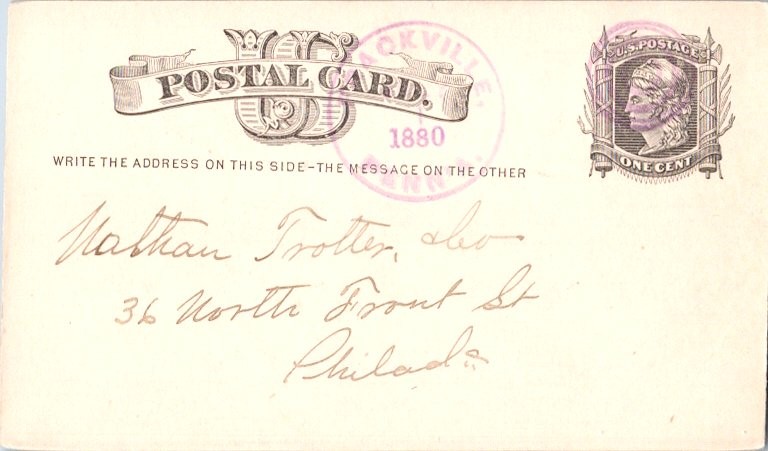 US
POSTAL CARD.
WRITE THE ADDRESS ON THIS SIDE–THE MESSAGE ON THE OTHER
U.S. POSTAGE
ONE CENT
1880
PENN'A.
Nathan Trotter, & Co
36 North Front St
Philada